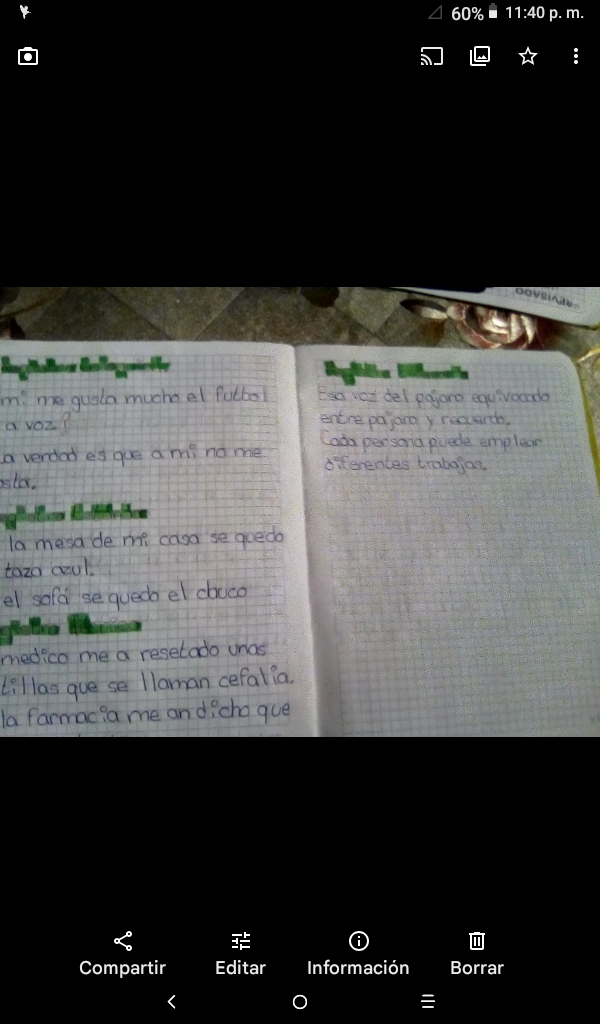 60% 11:40 p. m.
REVISADO
mi me gusta mucho el futbol
a voz?
a verdad es que a mi no me
sta.
la mesa de mi casa se quedo
taza azul.
el sofá se quedo el chuco
medico me a resetado unas
tillas que se llaman cefalia.
la farmacia me an dicho que
Esa voz del pajaro equivocado
entre pajaro y recuerdo.
Cada persona puede emplear
diferentes trabajos.
Compartir
Editar
Información
Borrar